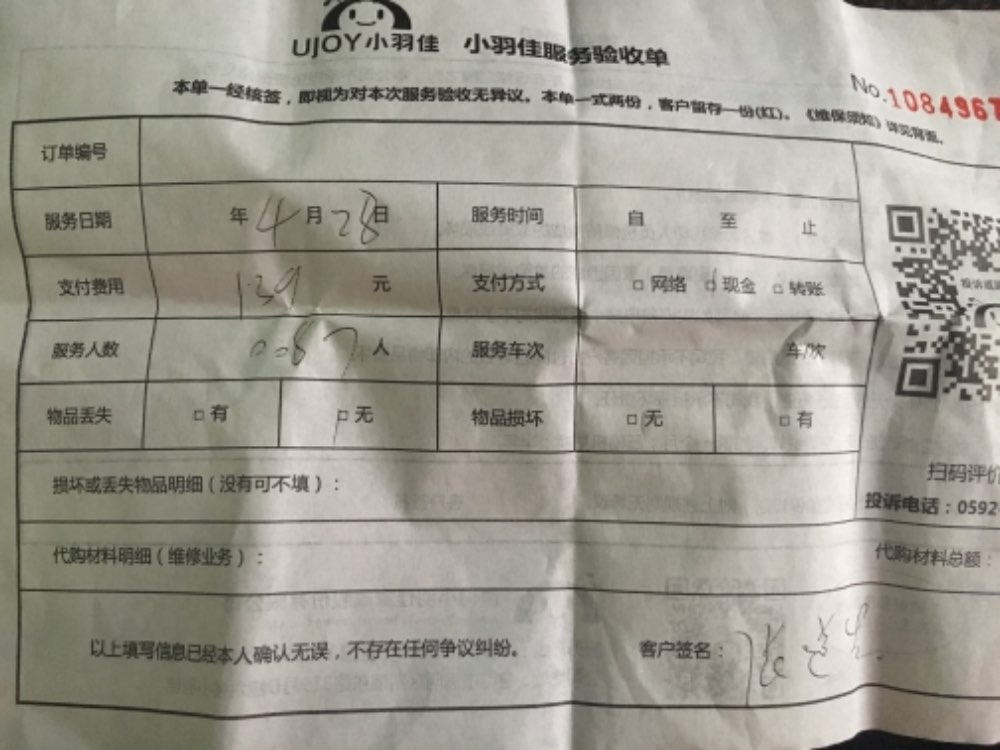 UJOY小羽佳 小羽佳服务验收单
No.1084967
本单一经核签，即视为对本次服务验收无异议。本单一式两份，客户留存一份(红)。《维保须知》详见背面。
订单编号
服务日期 年 4 月 28 日 服务时间 自 至 止
支付费用 139 元 支付方式 □ 网络 □ 现金 □ 转账
服务人数 0087 人 服务车次 车/次
物品丢失 □ 有 □ 无 物品损坏 □ 无 □ 有
投诉或
扫码评价
损坏或丢失物品明细（没有可不填）：
投诉电话：0592
代购材料明细（维修业务）：
代购材料总额：
以上填写信息已经本人确认无误，不存在任何争议纠纷。 客户签名：